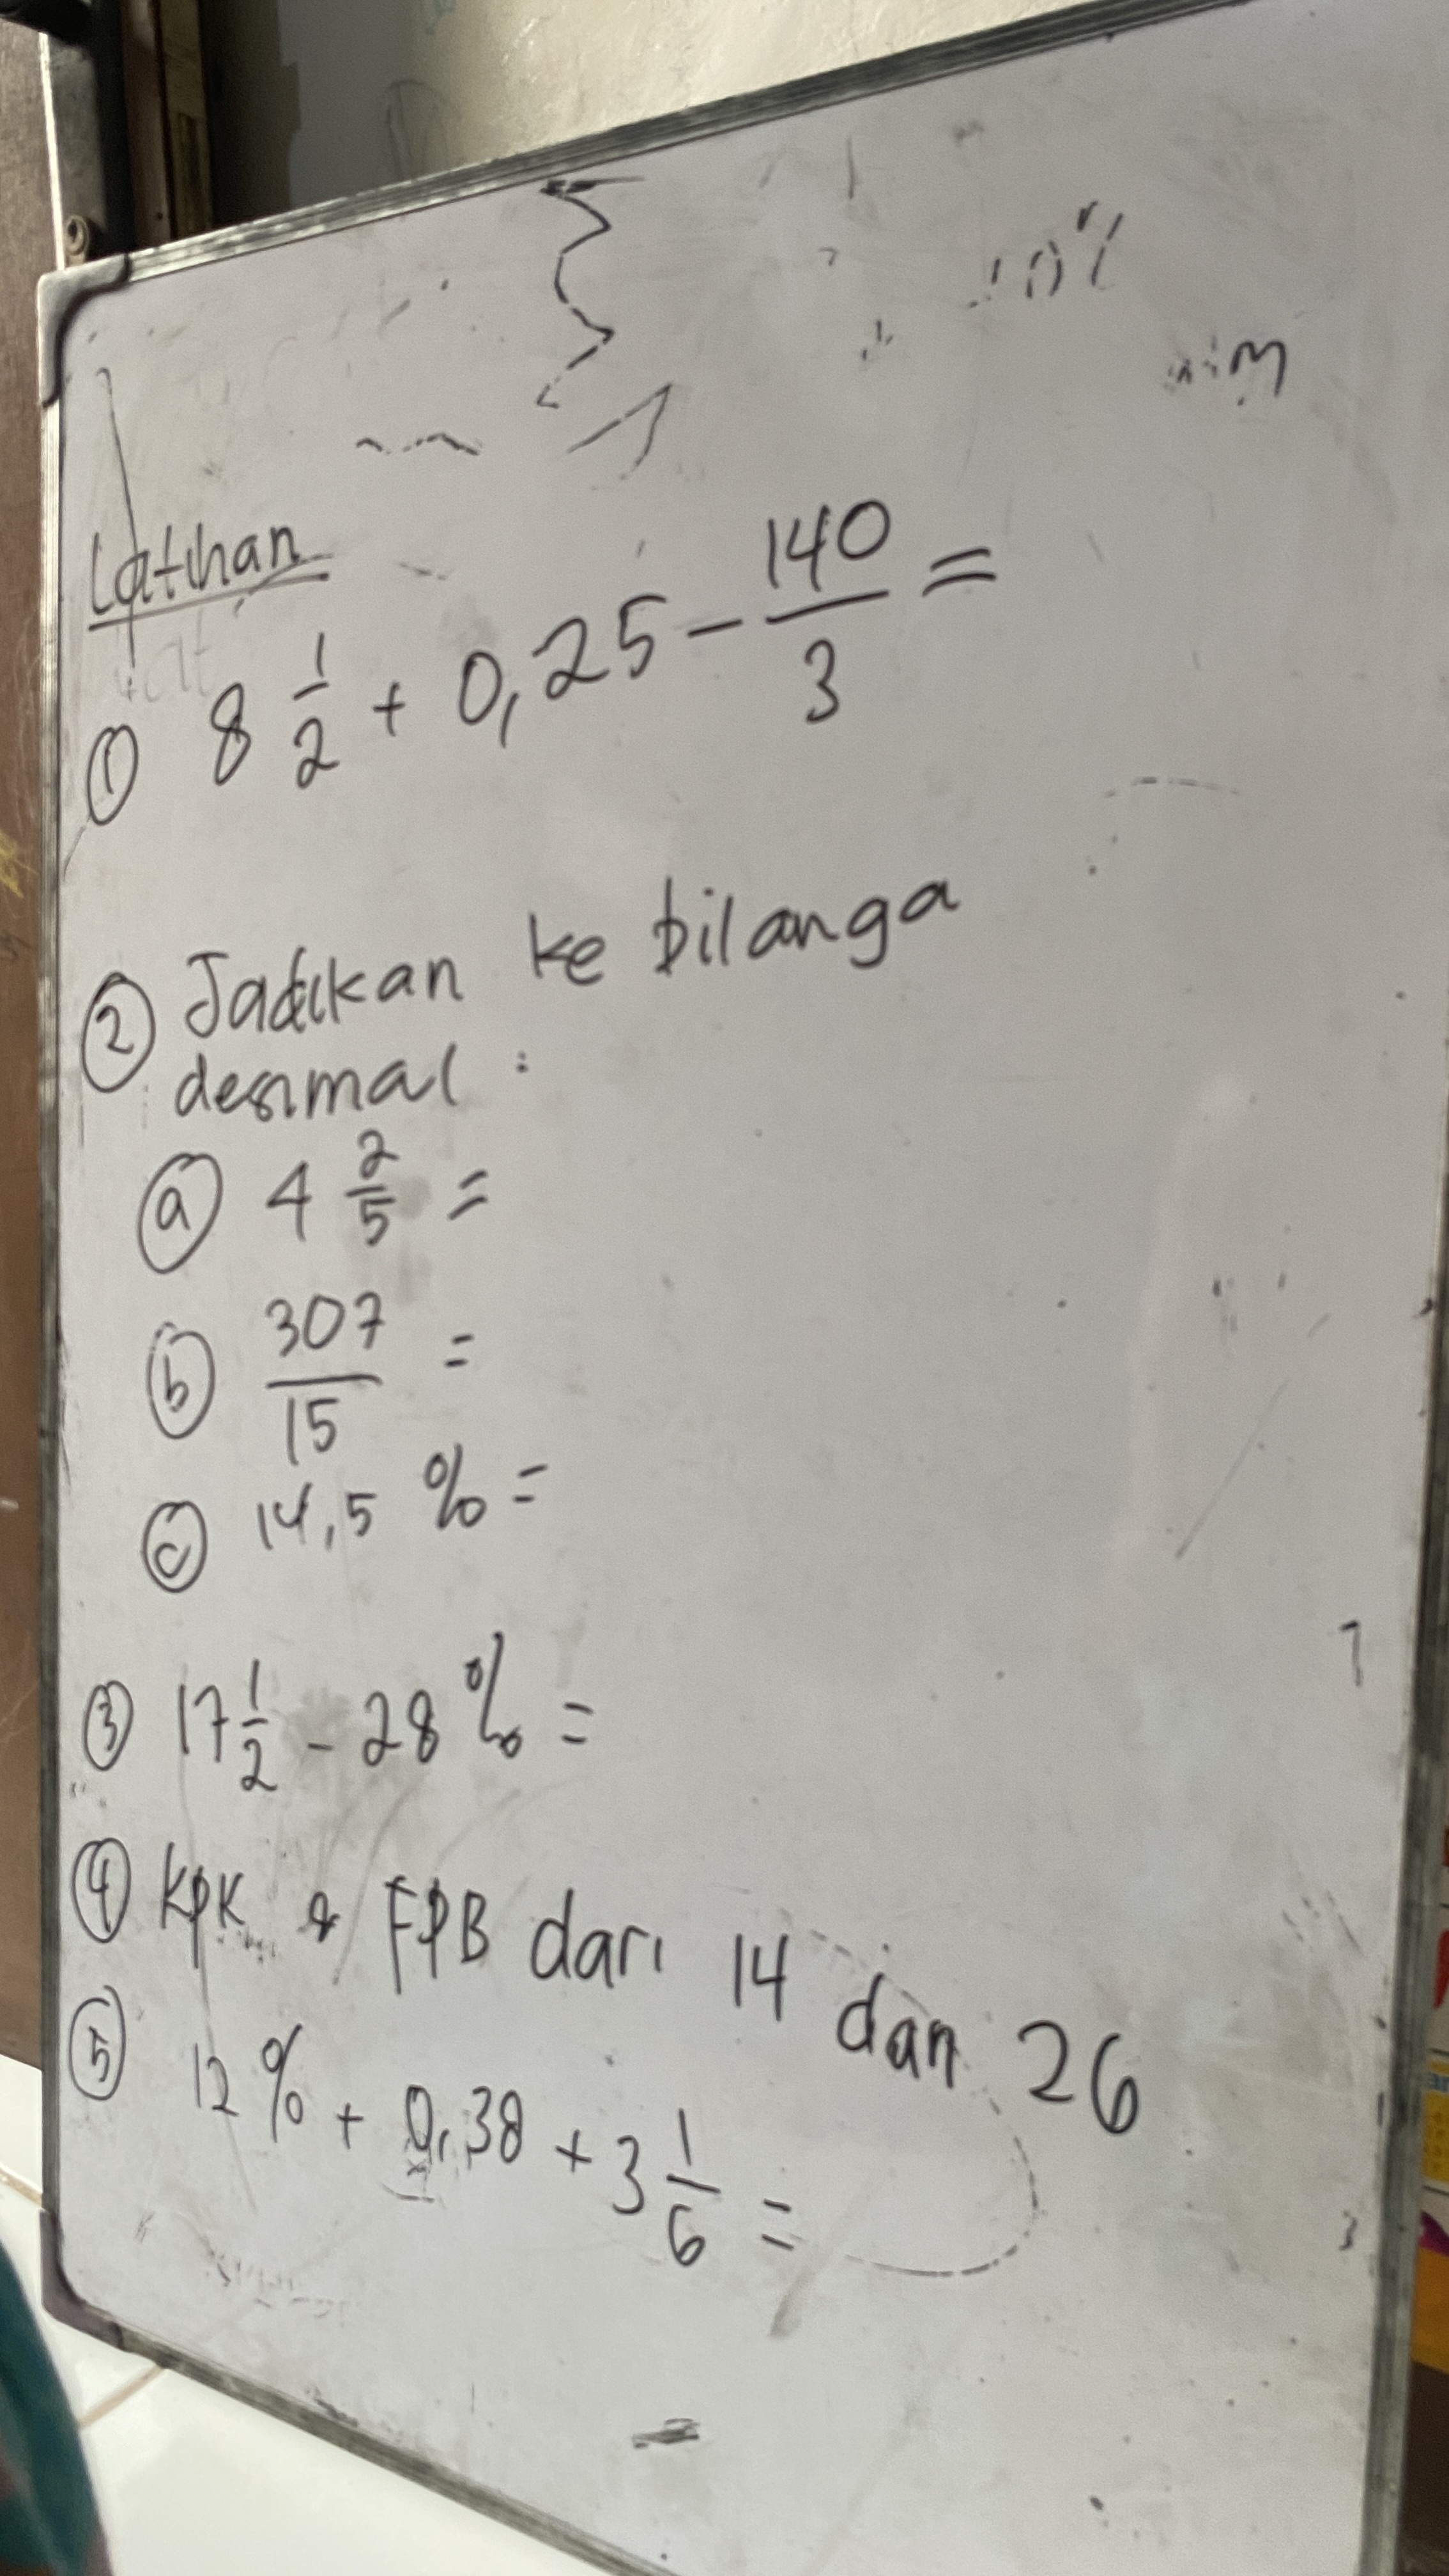 Latihan
① 8 1/2 + 0,25 - 140/3 =
② Jadikan ke bilanga
desimal :
ⓐ 4 2/5 =
ⓑ 307/15 =
ⓒ 14,5 % =
③ 17 1/2 - 28 % =
④ KPK & FPB dari 14 dan 26
⑤ 12 % + 0,38 + 3 1/6 =